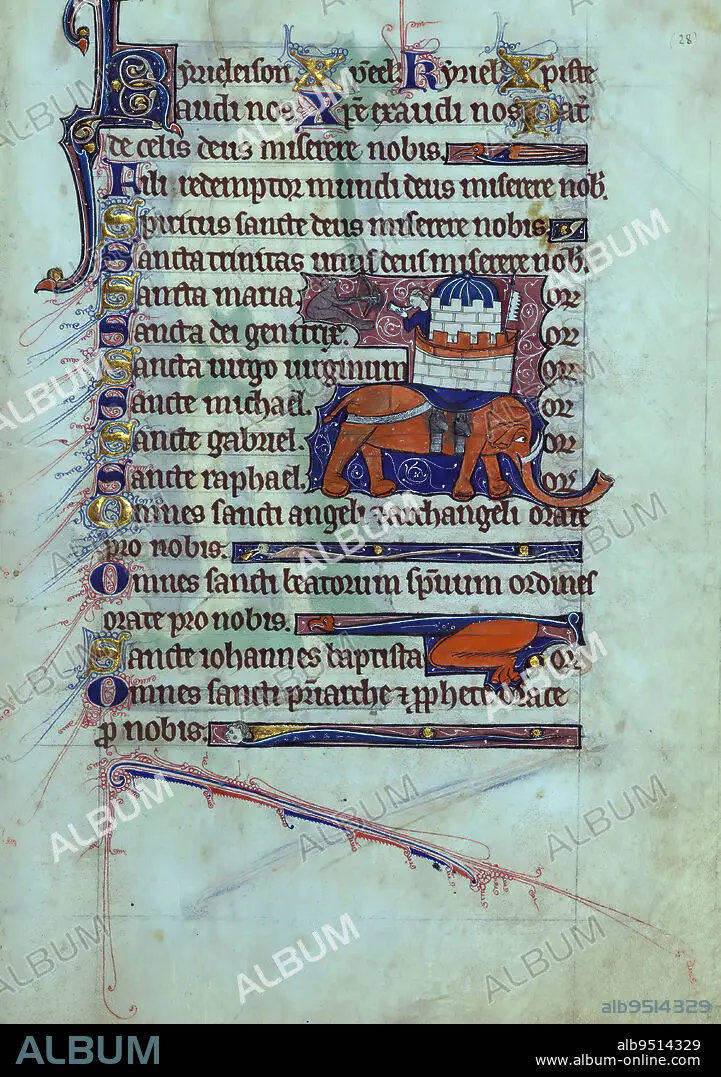 (28)
Kyrieleison Xp̄eel. Kyriel Xpiste
audi nos Xp̄e exaudi nos Pat̄
de celis deus miserere nobis.
Fili redemptor mundi deus miserere nob̄.
Spiritus sancte deus miserere nobis.
Sancta trinitas unus deus miserere nob̄.
Sancta maria. or̄
Sancta dei genitrix. or̄
Sancta uirgo uirginum or̄
Sancte michael. or̄
Sancte gabriel. or̄
Sancte raphael. or̄
Omnes sancti angeli ⁊ archangeli orate
pro nobis.
Omnes sancti beatorum sp̄uum ordines
orate pro nobis.
Sancte iohannes baptista or̄
Omnes sancti p̄riarche ⁊ p̄phete orate
ꝓ nobis.
alb9514329
ALBUM
alb9514329
www.album-online.com